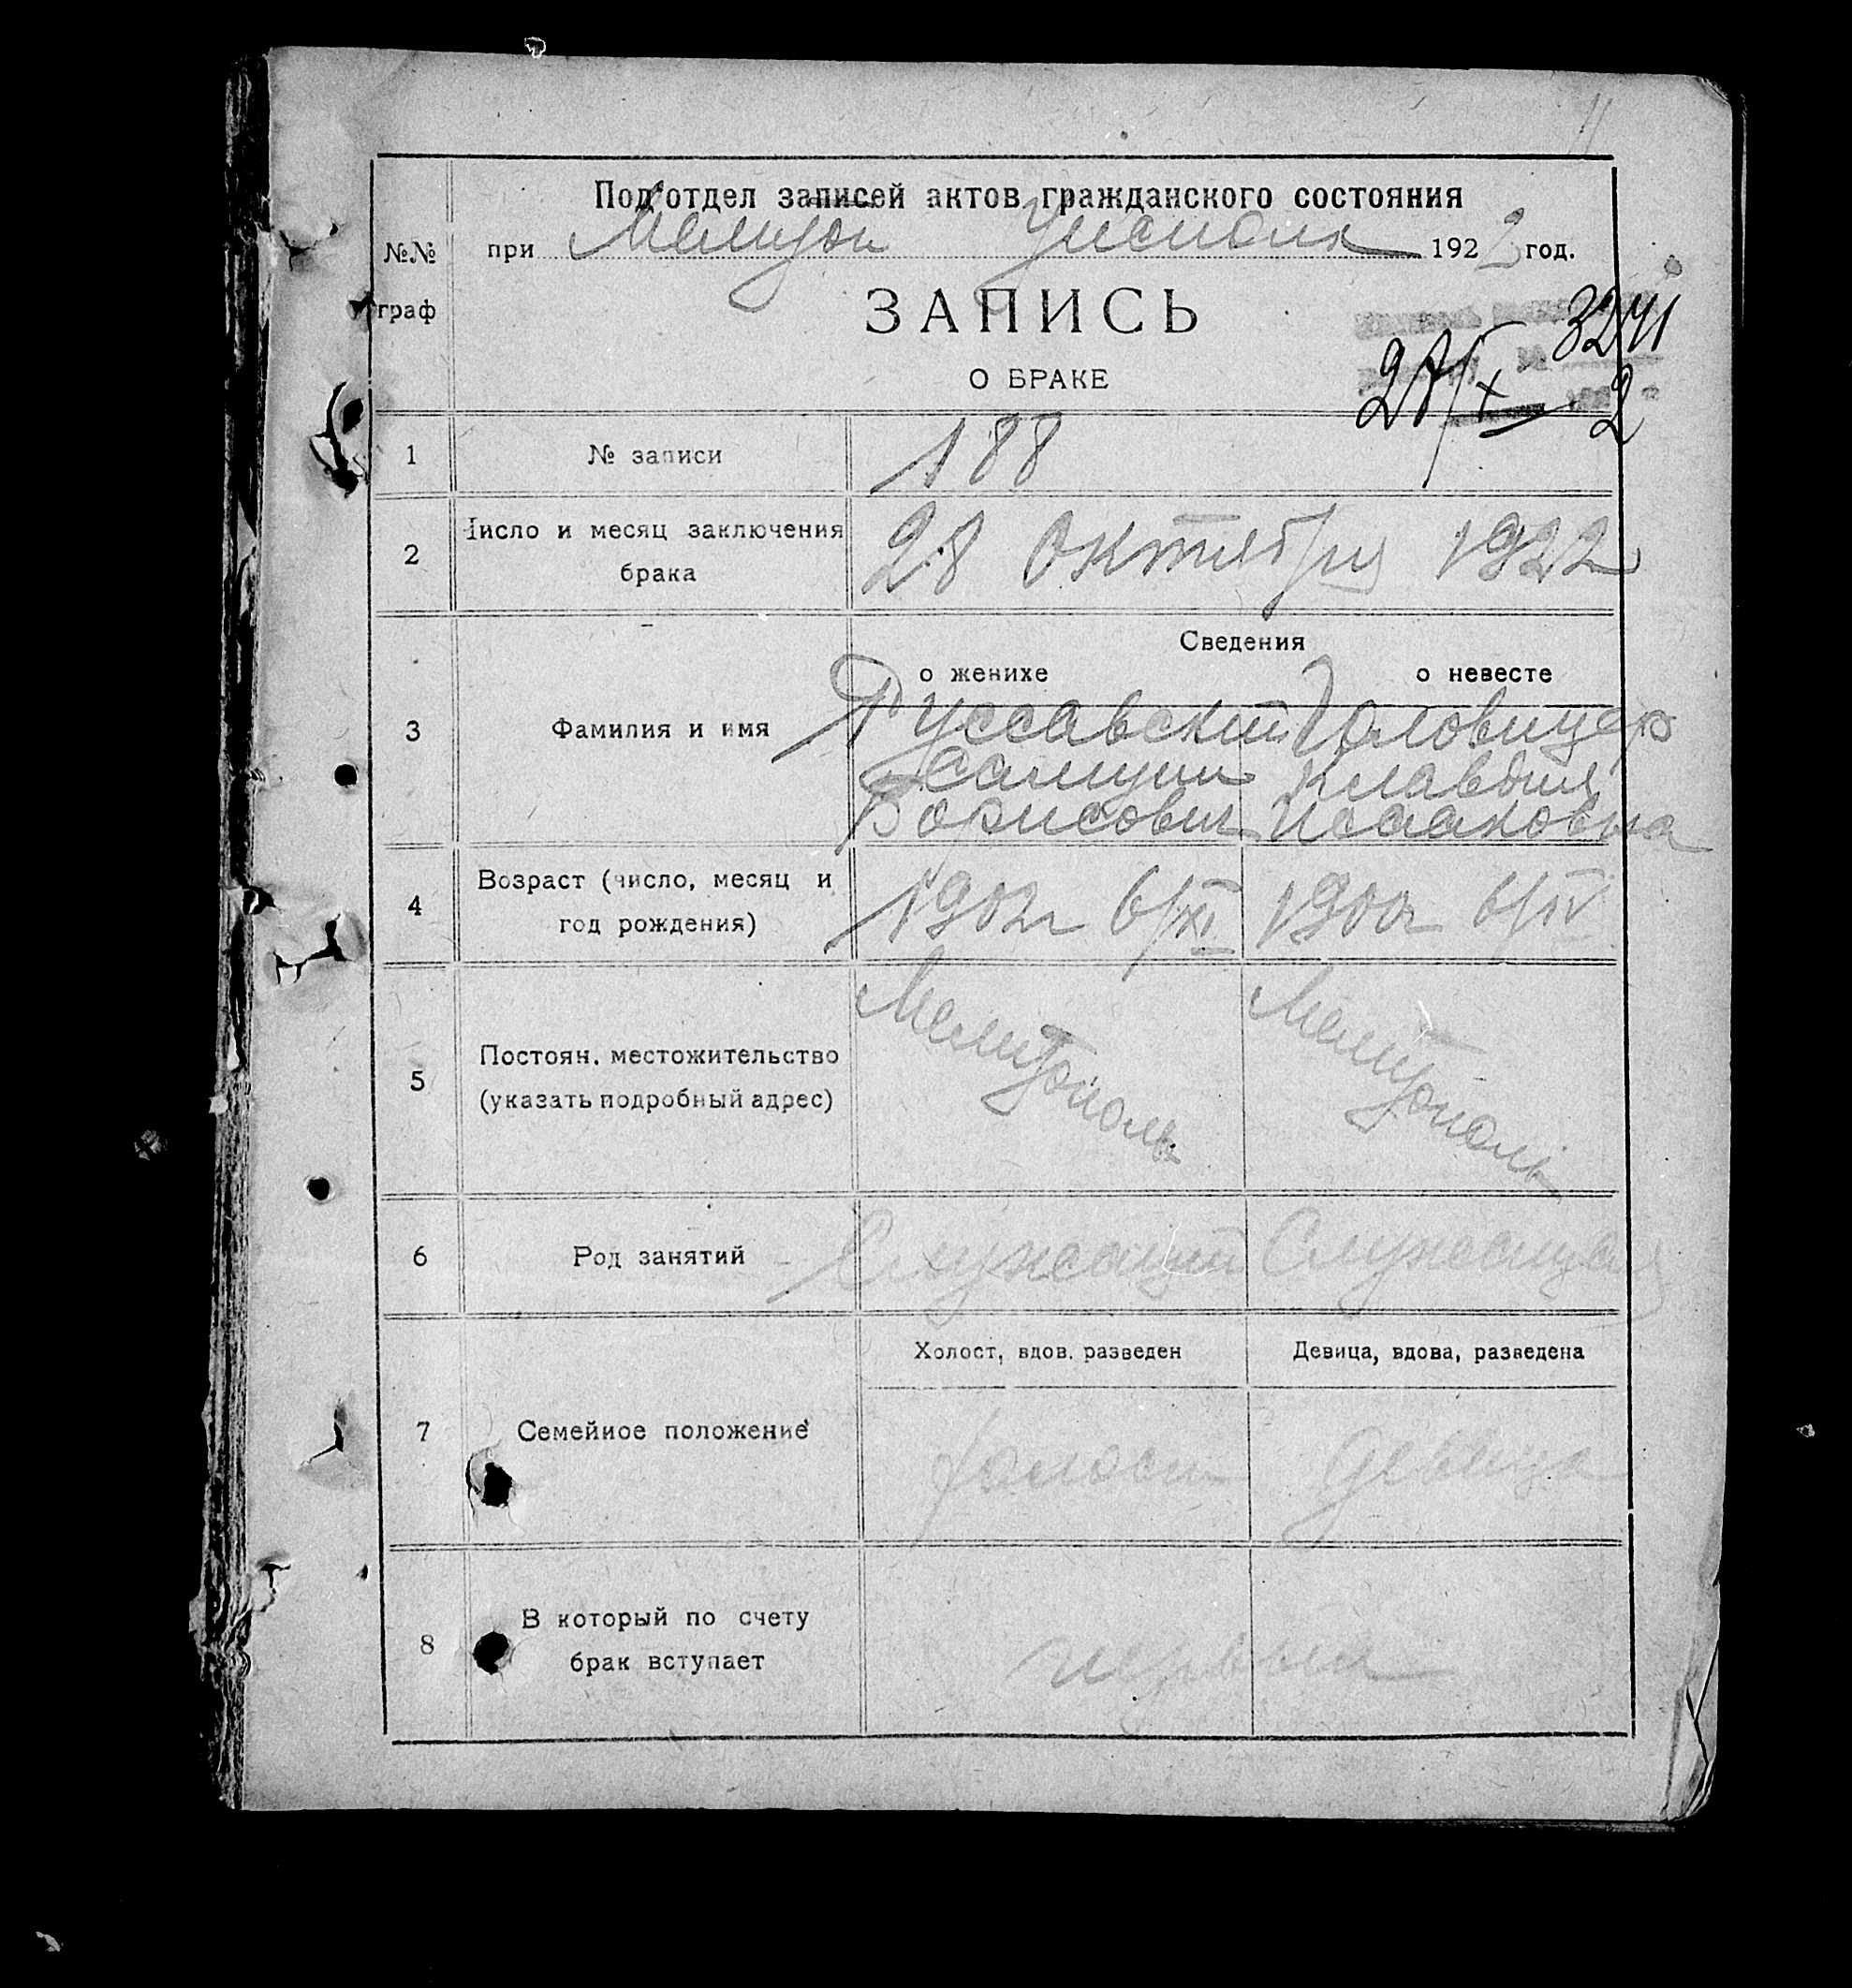 Подотдел записей актов гражданского состояния
№№ граф
при Мелитоп Уисполк 1922 год.
ЗАПИСЬ
О БРАКЕ
3241
27/X 2
1 № записи 188
2 Число и месяц заключения брака 28 Октября 1922
Сведения
о женихе о невесте
3 Фамилия и имя
Руссавский
Самуил
Борисович
Клавдия
Исааковна
4 Возраст (число, месяц и год рождения) 1902 г 6/XI 1900 г 6/IV
5 Постоян. местожительство
(указать подробный адрес)
Мелитополь Мелитополь
6 Род занятий Служащий Служащая
Холост, вдов. разведен Девица, вдова, разведена
7 Семейное положение холост девица
8 В который по счету
брак вступает
первый